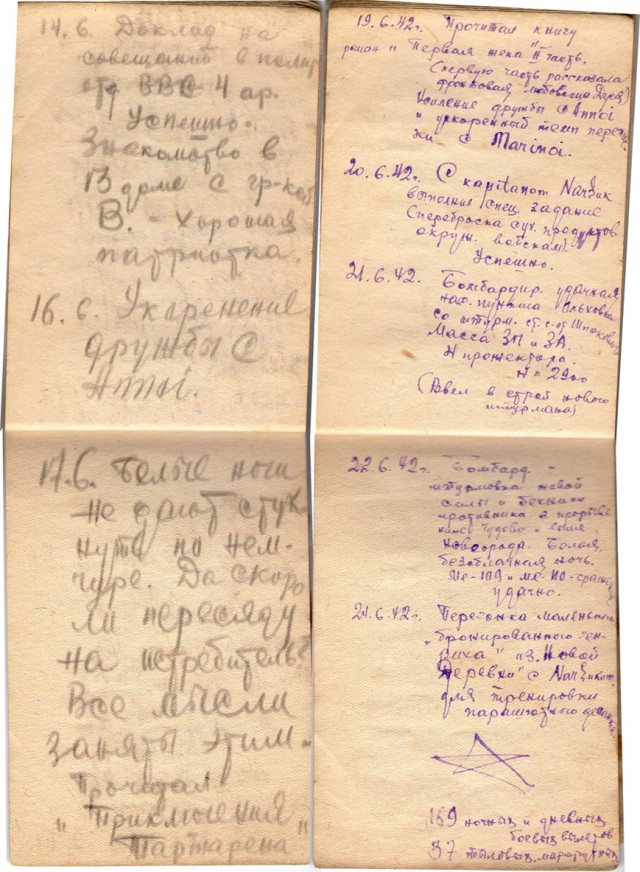 14.6. Доклад на
совещании в полит
отд ВВС 4 ар.
Успешно.
Знакомство в
13 доме с гр-кой
В. - Хорошая
патриотка.
16.6. Укоренение
дружбы с
Annoi.
17.6. Белые ночи
не дают стук
нуть по нем-
чуре. Да скоро
ли пересяду
на истребитель?
Все мысли
заняты этим.
Прочитал
"Приключения
Тартарена"
19.6.42г. Прочитал книгу
роман и "Первая жена" II часть.
(первую часть рассказала
фронтовая любовница
Усиление дружбы с Annoi
и ускоренный темп переп
ки с Marinoi.
20.6.42г. С kapitanom Narзik
выполнил спец. задание
(переброска сух. продуктов
окруж. войскам).
Успешно.
21.6.42. Бомбардир. удачная
нас. пункта Ольховка
со штурм. ст. с-от
Масса ЗП и ЗА.
4 прожектора.
H = 2900
(Ввел в строй нового
штурмана)
22.6.42г. Бомбард. -
штурмовка живой
силы и техники
противника в прорыве
Чудово -
Новгорода. Белая,
безоблачная ночь.
Ме-109 и Ме-110 -
удачно.
24.6.42г. Перегонка маленького
"бронированного ген-
риха" из "Новой
Деревни" с Narзikom
для тренировки
парашютного
169 ночных и дневных
боевых вылетов
37 тыловых